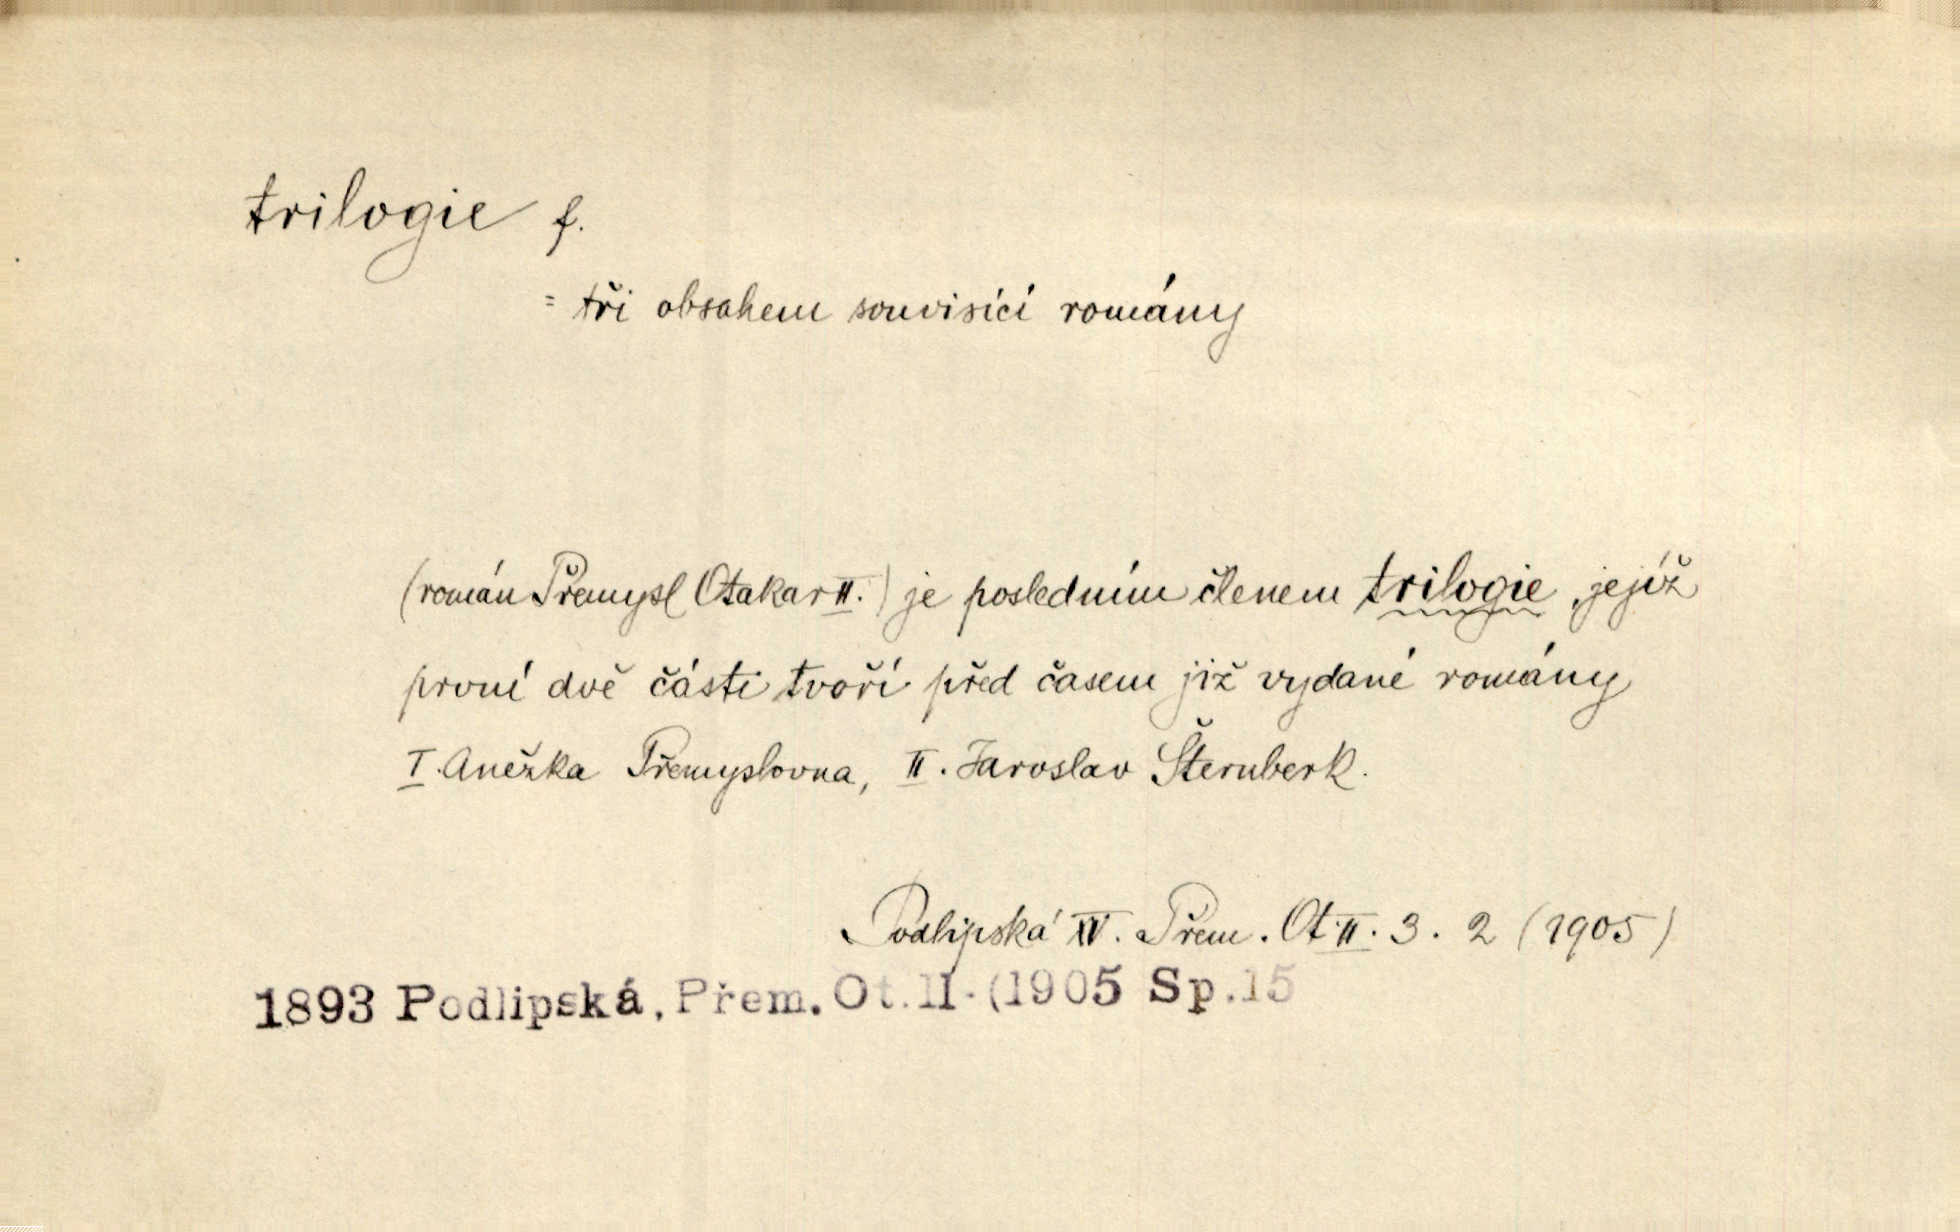 trilogie f.
= tři obsahem souvisící romány
(román Přemysl Otakar II.) je posledním členem trilogie, jejíž
první dvě části tvoří před časem již vydané romány
I. Anežka Přemyslovna, II. Jaroslav Šternberk.
Podlipská XV. Přem. Ot. II. 3. 2 (1905)
1893 Podlipská, Přem. Ot. II. (1905 Sp.15